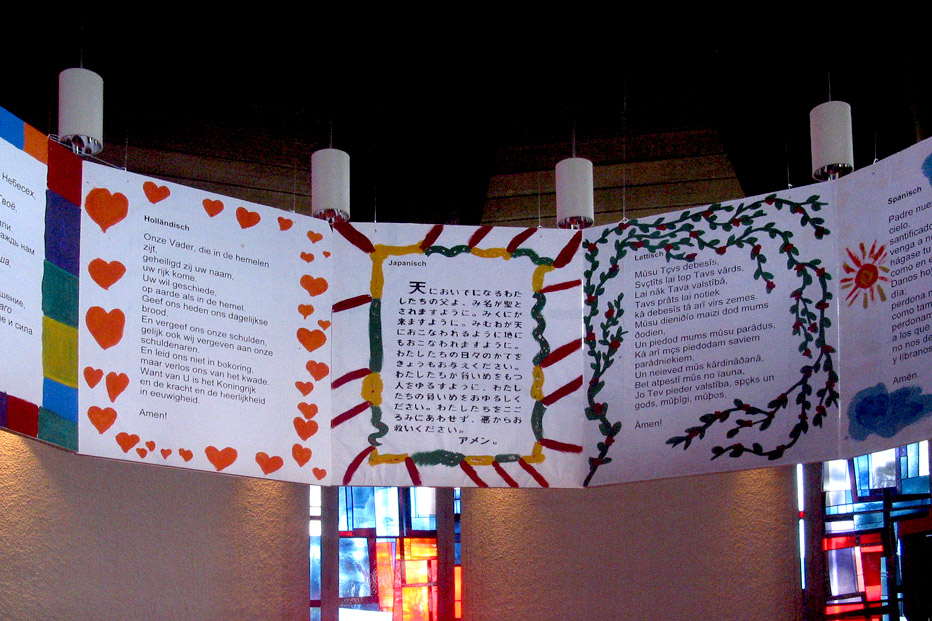 Небесех,
Твоё.
нам
и сила
Holländisch
Onze Vader, die in de hemelen
zijt,
geheiligd zij uw naam,
uw rijk kome.
Uw wil geschiede,
op aarde als in de hemel.
Geef ons heden ons dagelijkse
brood.
En vergeef ons onze schulden,
gelijk ook wij vergeven aan onze
schuldenaren.
En leid ons niet in bekoring,
maar verlos ons van het kwade.
Want van U is het Koningrijk
en de kracht en de heerlijkheid
in eeuwigheid.
Amen!
Japanisch
天においてになるわた
したちの父よ、み名が聖と
されますように。みくにが
来ますように。みむねが天
におこなわれるように地に
もおこなわれますように。
わたしたちの日々のかてを
きょうもお与えください。
わたしたちが負いめをもつ
人をゆるすように、わたし
たちの負いめをおゆるしく
ださい。わたしたちをここ
ろみにあわせず、悪からお
救いください。
アメン。
Lettisch
Mūsu Tçvs debesīs,
Svçtīts lai top Tavs vārds,
Lai nāk Tava valstība.
Tavs prāts lai notiek
kā debesīs tā arī virs zemes.
Mūsu dieniðío maizi dod mums
ðodien,
Un piedod mums mūsu parādus,
Kā arī mçs piedodam saviem
parādniekiem,
Un neieved mūs kārdināðanā,
Bet atpestī mūs no ïauna,
Jo Tev pieder valstība, spçks un
gods, mūþīgi, mūþos,
Āmen!
Spanisch
Padre
cielo,
santificado
venga a
hágase tu
como en
Danos hoy
día;
perdona
como
perdonamos
a los que
no nos
y líbranos
Amén.